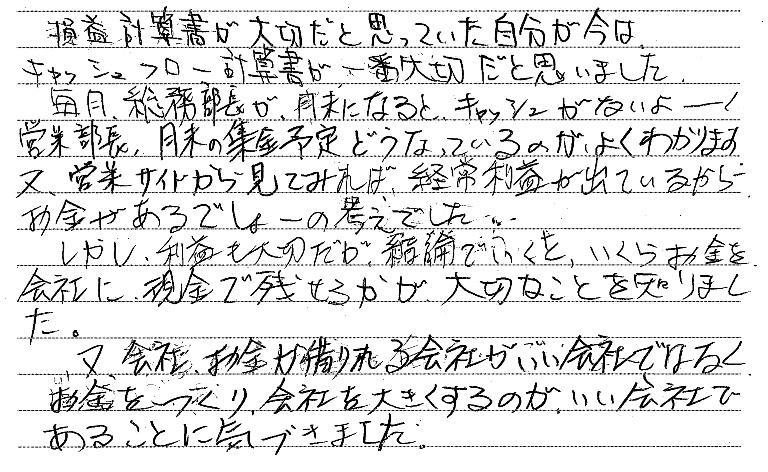 損益計算書が大切だと思っていた自分が今は、
キャッシュフロー計算書が、一番大切だと思いました。
毎月、総務部長が、月末になると、キャッシュがないよー!
営業部長、月末の集金予定どうなっているのが、よくわかります
又、営業サイドから見てみれば、経常利益が出ているから
お金があるでしょーの考えでした…
しかし、利益も大切だが、結論でいくと、いくらお金を
会社に、現金で残せるかが、大切なことを知りまし
た。
又、会社、お金が借りれる会社がいい会社ではなく
お金をつくり、会社を大きくするのが、いい会社で
あることに気づきました。